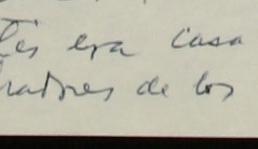 tes era casa
radores de los